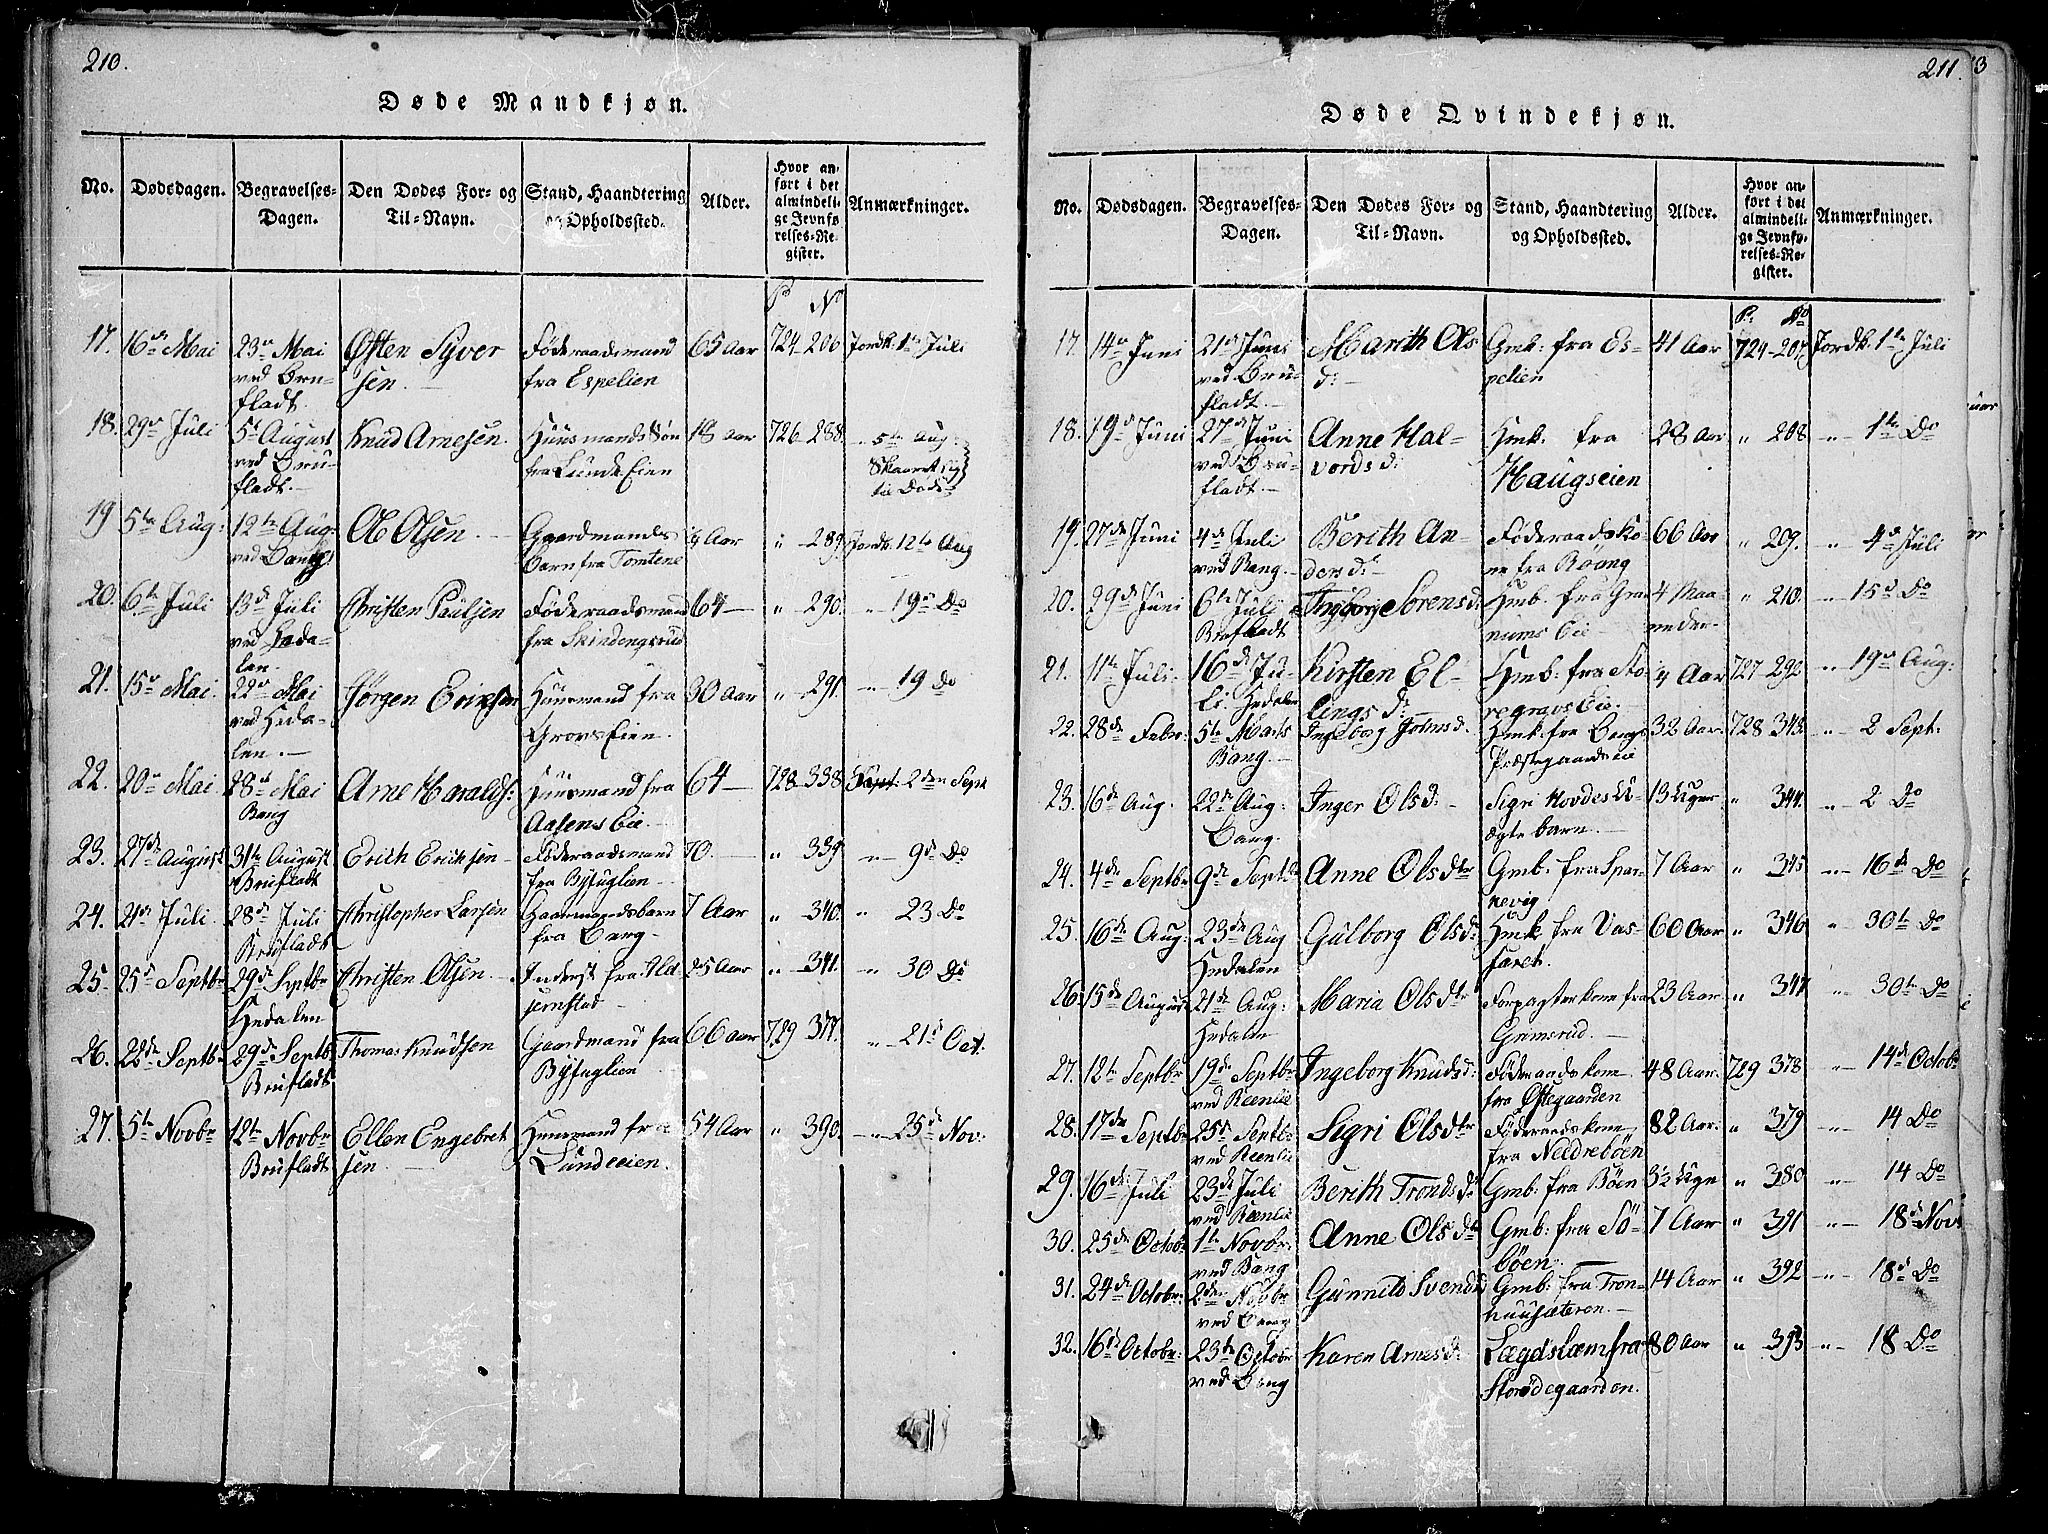 210.
Døde Mandkjøn.
No. Dødsdagen. Begravelses-Dagen. Den Dødes For- og Til-Navn. Stand, Haandtering og Opholdssted. Alder. Hvor anført i det almindelige Jevnførelses-Register. Anmærkninger.
P. No
17. 16de Mai 23de Mai ved Brufladt. Østen Syversen. Föderaadsmand fra Espelien 65 Aar 724 206 Jordk. 1te Juli
18. 29de Juli 5te August ved Brufladt. Knud Arnesen. Huusmands Søn fra Lunde Eien 18 Aar 726 288. 5te Aug: Skaaret sig til Døds
19 5te Aug: 12te Aug. ved Bang Ole Olsen. Gaardmands Barn fra Tomtene 9 Aar " 289. Jordk. 12te Aug
20. 6te Juli 13de Juli ved Hedalen. Christen Paulsen Föderaadsmand fra Skindengsrud 64 " 290. " 19de Do
21. 15de Mai. 22de Mai ved Hedalen. Jørgen Ericksen Huusmand fra Grovs Eien. 30 Aar " 291. " 19 do
22. 20de Mai 28de Mai Bang Arne Haralds: Huusmand fra Aasens Eie. 64 728 338 2den Sept
23. 27de August 31te August Brufladt Erich Erichsen Föderaadsmand fra Byfuglien 70. " 339 " 9de Do
24. 21de Juli. 28de Juli Brufladt Christopher Larsen Gaarmandsbarn fra Bang 7 Aar " 340. " 23 Do
25. 25de Septbr 29de Septbr Hedalen Christen Olsen Inderst fra 25 Aar " 341. " 30 Do
26. 22de Septbr 29de Septb. Brufladt Thomas Knudsen Gaardmand fra Byfuglien 66 Aar 729 377. " 21de Oct.
27. 5te Novbr 12te Novbr Brufladt Ellen Engebretsen. Huusmand fra Lundeeien. 54 Aar " 390. " 25de Nov:
211.
Døde Qvindekjøn.
No. Dødsdagen. Begravelses-Dagen. Den Dødes For- og Til-Navn. Stand, Haandtering og Opholdssted. Alder. Hvor anført i det almindelige Jevnførelses-Register. Anmærkninger.
P. No
17. 14de Juni 21de Juni ved Brufladt. Marith Olsd: Gmb: fra Espelien 41 Aar 724 207 Jordk. 1te Juli
18. 19de Juni 27de Juni ved Brufladt. Anne Halvordsd: Hmk. fra Haugseien 28 Aar " 208 " 1te Do
19. 27de Juni 4de Juli ved Bang. Berith Andersd: Föderaadskone fra Röang 66 Aar " 209. " 4de Juli
20. 29de Juni 6te Juli Brufladt Ingborg Sörensd: Hmb. fra Granums Eie 4 Maaneder. " 210. " 15de Do
21. 11te Juli. 16de Juli. Hedalen Kirsten Ellingsd: Hmb: fra Storegravs Eie. 4 Aar 727 292 " 19de Aug:
22. 28de Febr: 5te Marts Bang. Ingeborg Johnsd. Hmk. fra Bangs Præstegaards eie 32 Aar. 728 343. " 2 Sept.
23. 16de Aug. 22de Aug: Bang. Inger Olsd: Sigri Hovdes Uægte barn. 13 Uger " 344. " 2 Do
24. 4de Septbr 9de Septbr Anne Olsdtr Gmb: fra Sparnevig 7 Aar " 345 " 16de Do
25. 16de Aug: 23de Aug Hedalen Gulborg Olsd: Hmk fra Vasfaret. 60 Aar " 346 " 30te Do
26. 15de August 21de Aug: Hedalen Maria Olsdtr Forpagterkone fra Grimsrud. 23 Aar " 347 " 30te Do
27. 12te Septbr 19de Septbr ved Reenlie Ingeborg Knudsd: Föderaadskone fra Østegaarden 48 Aar. 729 378 " 14de Octobr
28. 17de Septbr 25de Septbr ved Reenlie Sigri Olsdtr Föderaadskone fra Nedrebøen 82 Aar: " 379 " 14 Do
29. 16de Juli 23de Juli ved Reenlie Berith Trondsd: Gmb: fra Böen 3½ Ugr " 380 " 14 Do
30. 25de Octobr 1te Novbr: ved Bang Anne Olsdtr Gmb: fra Söböen. 7 Aar " 391 " 18de Nov:
31. 24de Octobr: 2den Novbr ved Bang Gunnild Svendsd Gmb: fra Tronhuussæteren. 14 Aar " 392 " 18de Do
32. 16de Octobr: 23de Octobr ved Bang Karen Arnesd: Lægdslæm fra Storødegaarden. 80 Aar " 393 " 18 Do